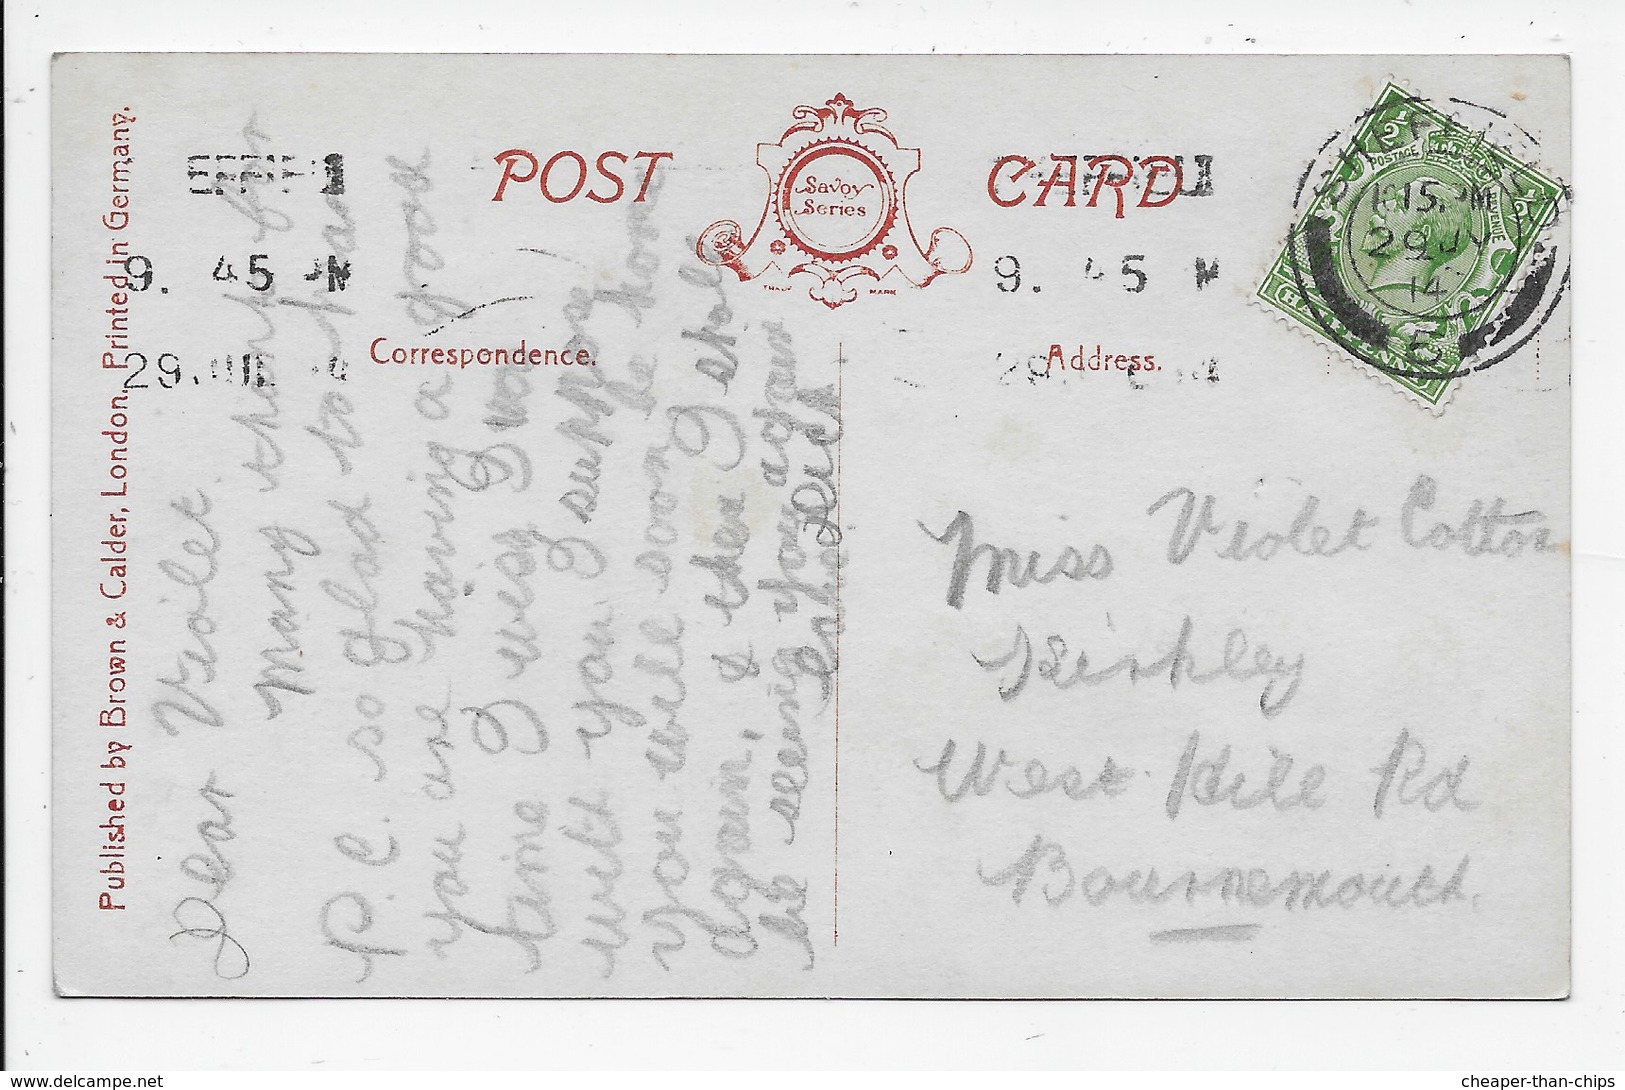 Published by Brown & Calder, London. Printed in Germany.
POST CARD
Savoy
Series
TRADE MARK
Correspondence.
Address.
9. 45 PM
29. JUL 14
9. 45 M
29.
SHEFFIELD
15 PM
29 JY
14
5
½ ½
POSTAGE REVENUE
HALFPENNY
Dear Violet
Many thanks for
P.C. so glad to hear
you are having a good
time I wish I was
with you, I suppose
you will soon be home
again, & then I shall
be seeing you again
Miss Violet Cotton
Kirkley
West Hill Rd
Bournemouth.
www.delcampe.net
cheaper-than-chips